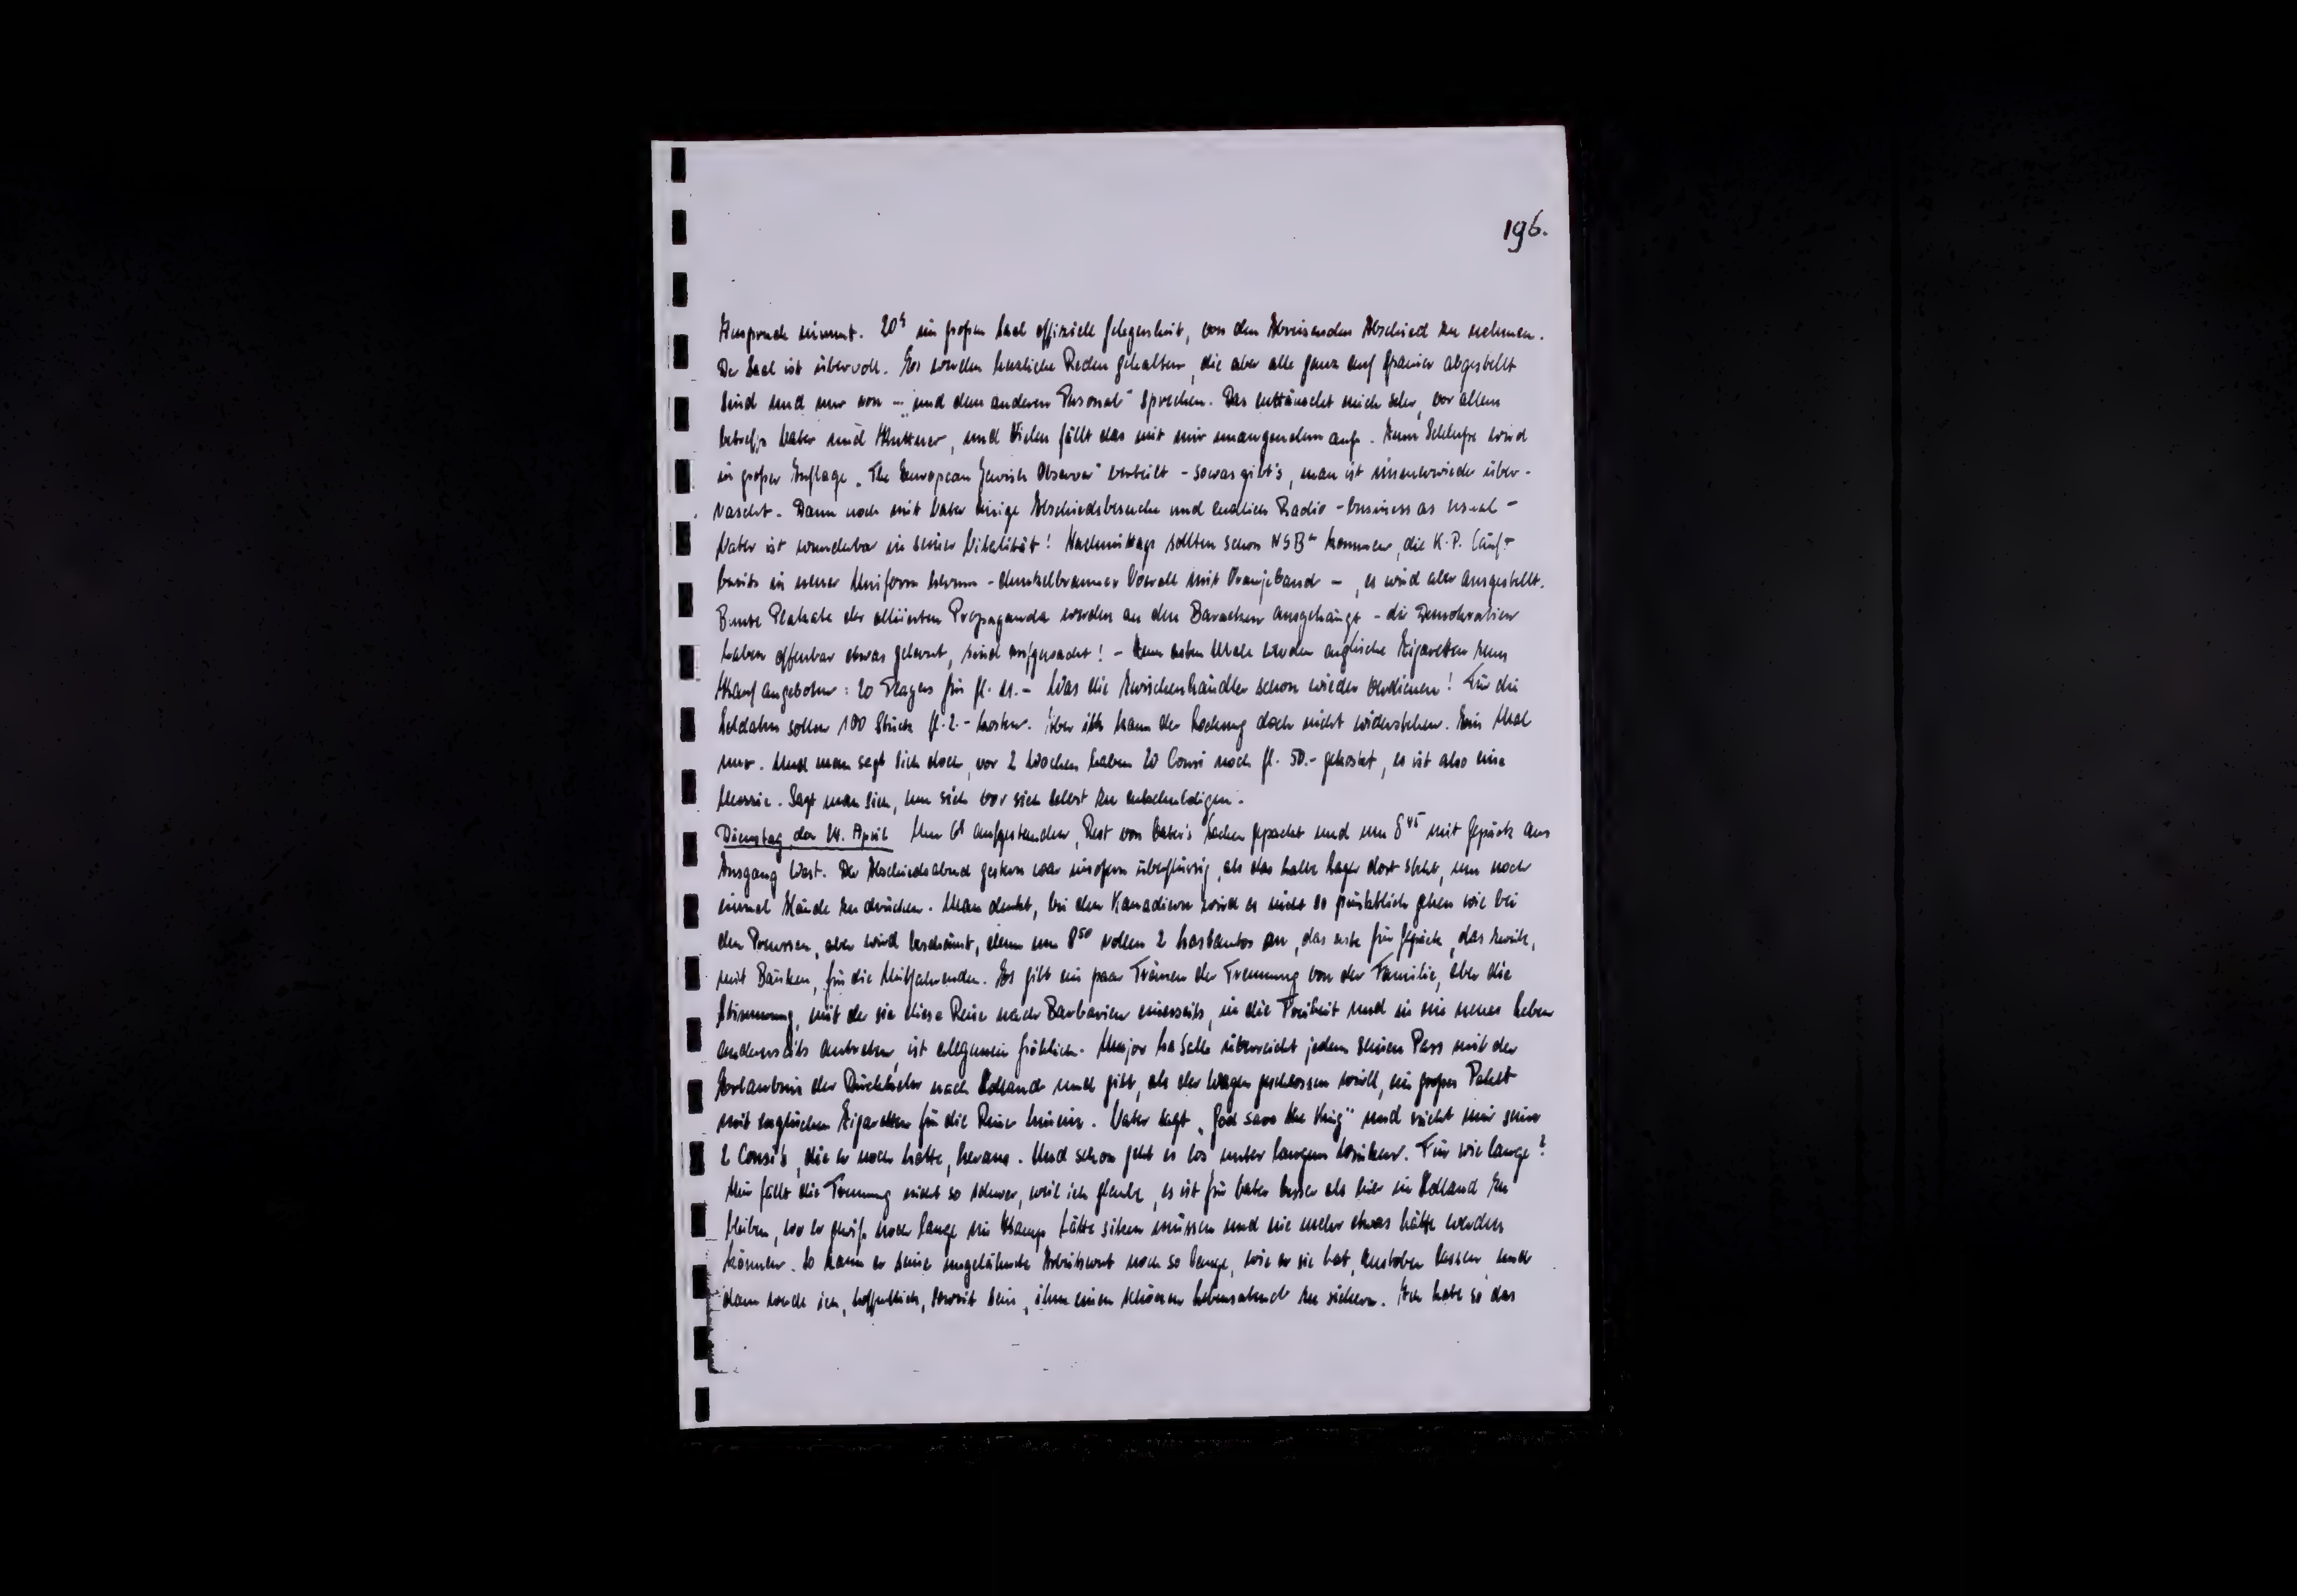 196.
Anspruch nimmt. 20h im großen Saal offizielle Gelegenheit, von den Abreisenden Abschied zu nehmen.
Der Saal ist übervoll. Es werden herzliche Reden gehalten, die aber alle ganz auf Spanier abgestellt
sind und nur von "... und dem anderen Personal" sprechen. Das enttäuscht mich sehr, vor allem
betreffs Vater und Huttner, und Vielen fällt das mit mir unangenehm auf. Zum Schluße wird
in großer Auflage „The European Jewish Observer" verteilt - sowas gibt's, man ist immerwieder über-
rascht. Dann noch mit Vater einige Abschiedsbesuche und endlich Radio - business as usual -
Vater ist wunderbar in seiner Vitalität! Nachmittags sollten schon NSBer kommen, die K.P. läuft
bereits in neuer Uniform herum - dunkelbrauner Overall mit Oranjeband -, es wird aber ausgestellt.
Bunte Plakate der alliierten Propaganda werden an den Baracken ausgehängt - die Demokratien
haben offenbar etwas gelernt, sind aufgewacht! - Zum ersten Male werden englische Zigaretten zum
Kauf angeboten: 20 Players für fl. 11.- Was die Zwischenhändler schon wieder verdienen! Für die
Soldaten sollen 100 Stück fl. 2.- kosten. Aber ich kann der Lockung doch nicht widerstehen. Ein Mal
nur. Und man sagt sich doch, vor 2 Wochen haben 20 Consi noch fl. 50.- gekostet, es ist also eine
Mezzie. Sagt man sich, um sich vor sich selbst zu entschuldigen.
Dienstag, den 24. April Um 6h aufgestanden, Rest von Vater's Sachen gepackt und um 8 45 mit Gepäck am
Ausgang West. Der Abschiedsabend gestern war insofern überflüssig, als das halbe Lager dort steht, um noch
einmal Hände zu drücken. Man denkt, bei den Kanadiern wird es nicht so pünktlich gehen wie bei
den Preussen, aber wird beschämt, denn um 8 50 rollen 2 Lastautos an, das erste für Gepäck, das zweite,
mit Bänken, für die Mitfahrenden. Es gibt ein paar Tränen der Trennung von der Familie, aber die
Stimmung, mit der sie diese Reise nach Barbarien einerseits, in die Freiheit und in ein neues Leben
anderseits antreten, ist allgemein fröhlich. Major La Salle überreicht jedem seinen Pass mit der
Erlaubnis der Rückkehr nach Holland und gibt, als der Wagen geschlossen wird, ein großes Paket
mit englischen Zigaretten für die Reise hinein. Vater sagt „God save the King" und reicht mir seine
2 Consi's, die er noch hatte, heraus. Und schon geht es los unter langem Winken. Für wie lange?
Mir fällt die Trennung nicht so schwer, weil ich glaube, es ist für Vater besser als hier in Holland zu
bleiben, wo er gewiß noch lange im Kamp hätte sitzen müssen und nie mehr etwas hätte werden
können. So kann er seine ungelähmte Arbeitswut noch so lange, wie er sie hat, austoben lassen, und
dann werde ich, hoffentlich, soweit sein, ihm einen schönen Lebensabend zu sichern. Ich habe so das